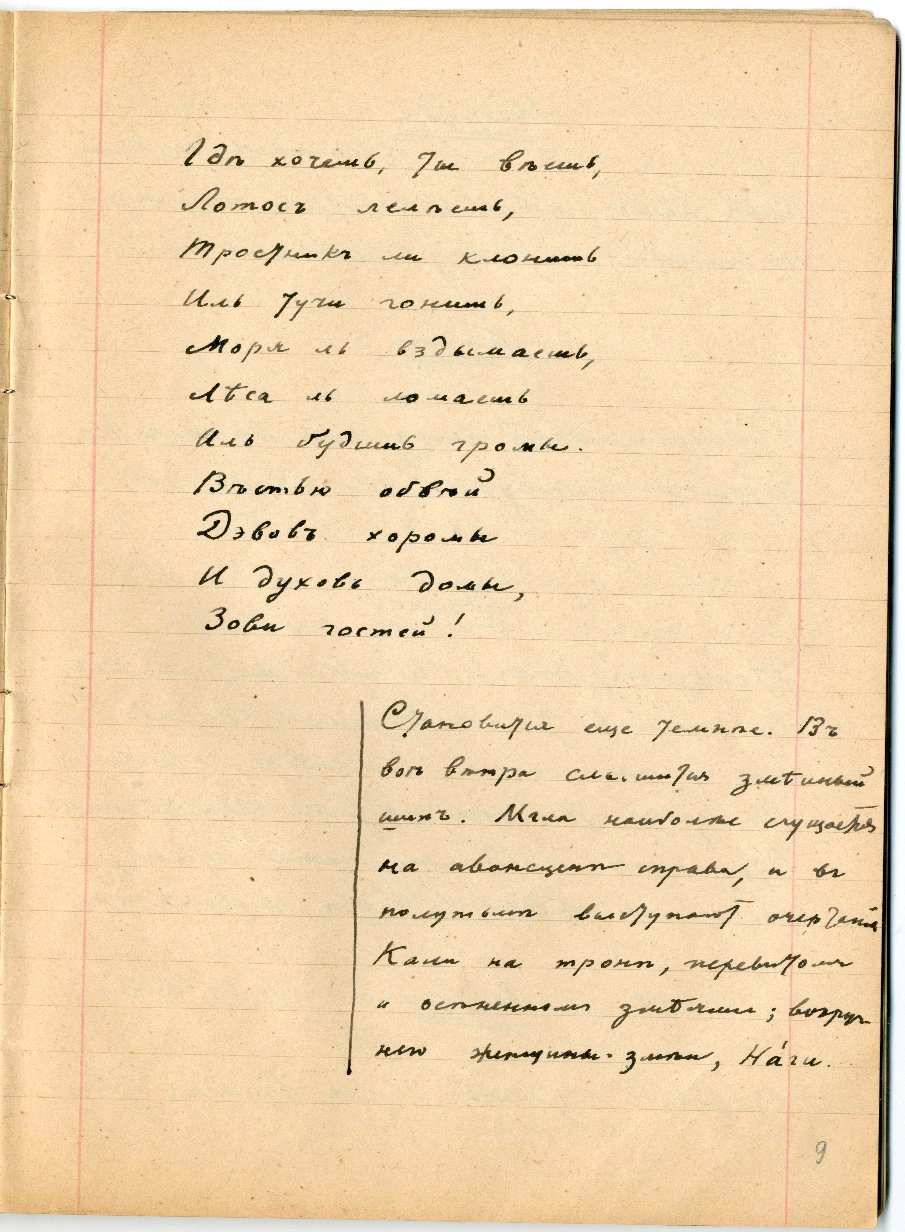 Гдѣ хочешь, ты вѣешь,
Лотосъ лелѣешь,
Тростникъ ли клонишь
Иль тучи гонишь,
Моря ль вздымаешь,
Лѣса ль ломаешь
Иль будишь громы.
Вѣстью обвѣй
Дэвовъ хоромы
И духовъ домы,
Зови гостей!
Становится еще темнѣе. Въ
воѣ вѣтра слышится змѣиный
шипъ. Мгла наиболѣе сгущается
на авансценѣ справа, и въ
полутьмѣ выступаютъ очертанія
Кали на тронѣ, перевитомъ
и осѣненномъ змѣями; вокругъ
нею женщины-змѣи, На́ги.
9